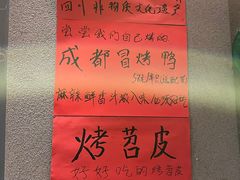 四川非物质文化遗产
尝尝我们自己烤的
成都冒烤鸭
麻辣鲜香汁浓入味
烤苕皮
好好吃的烤苕皮